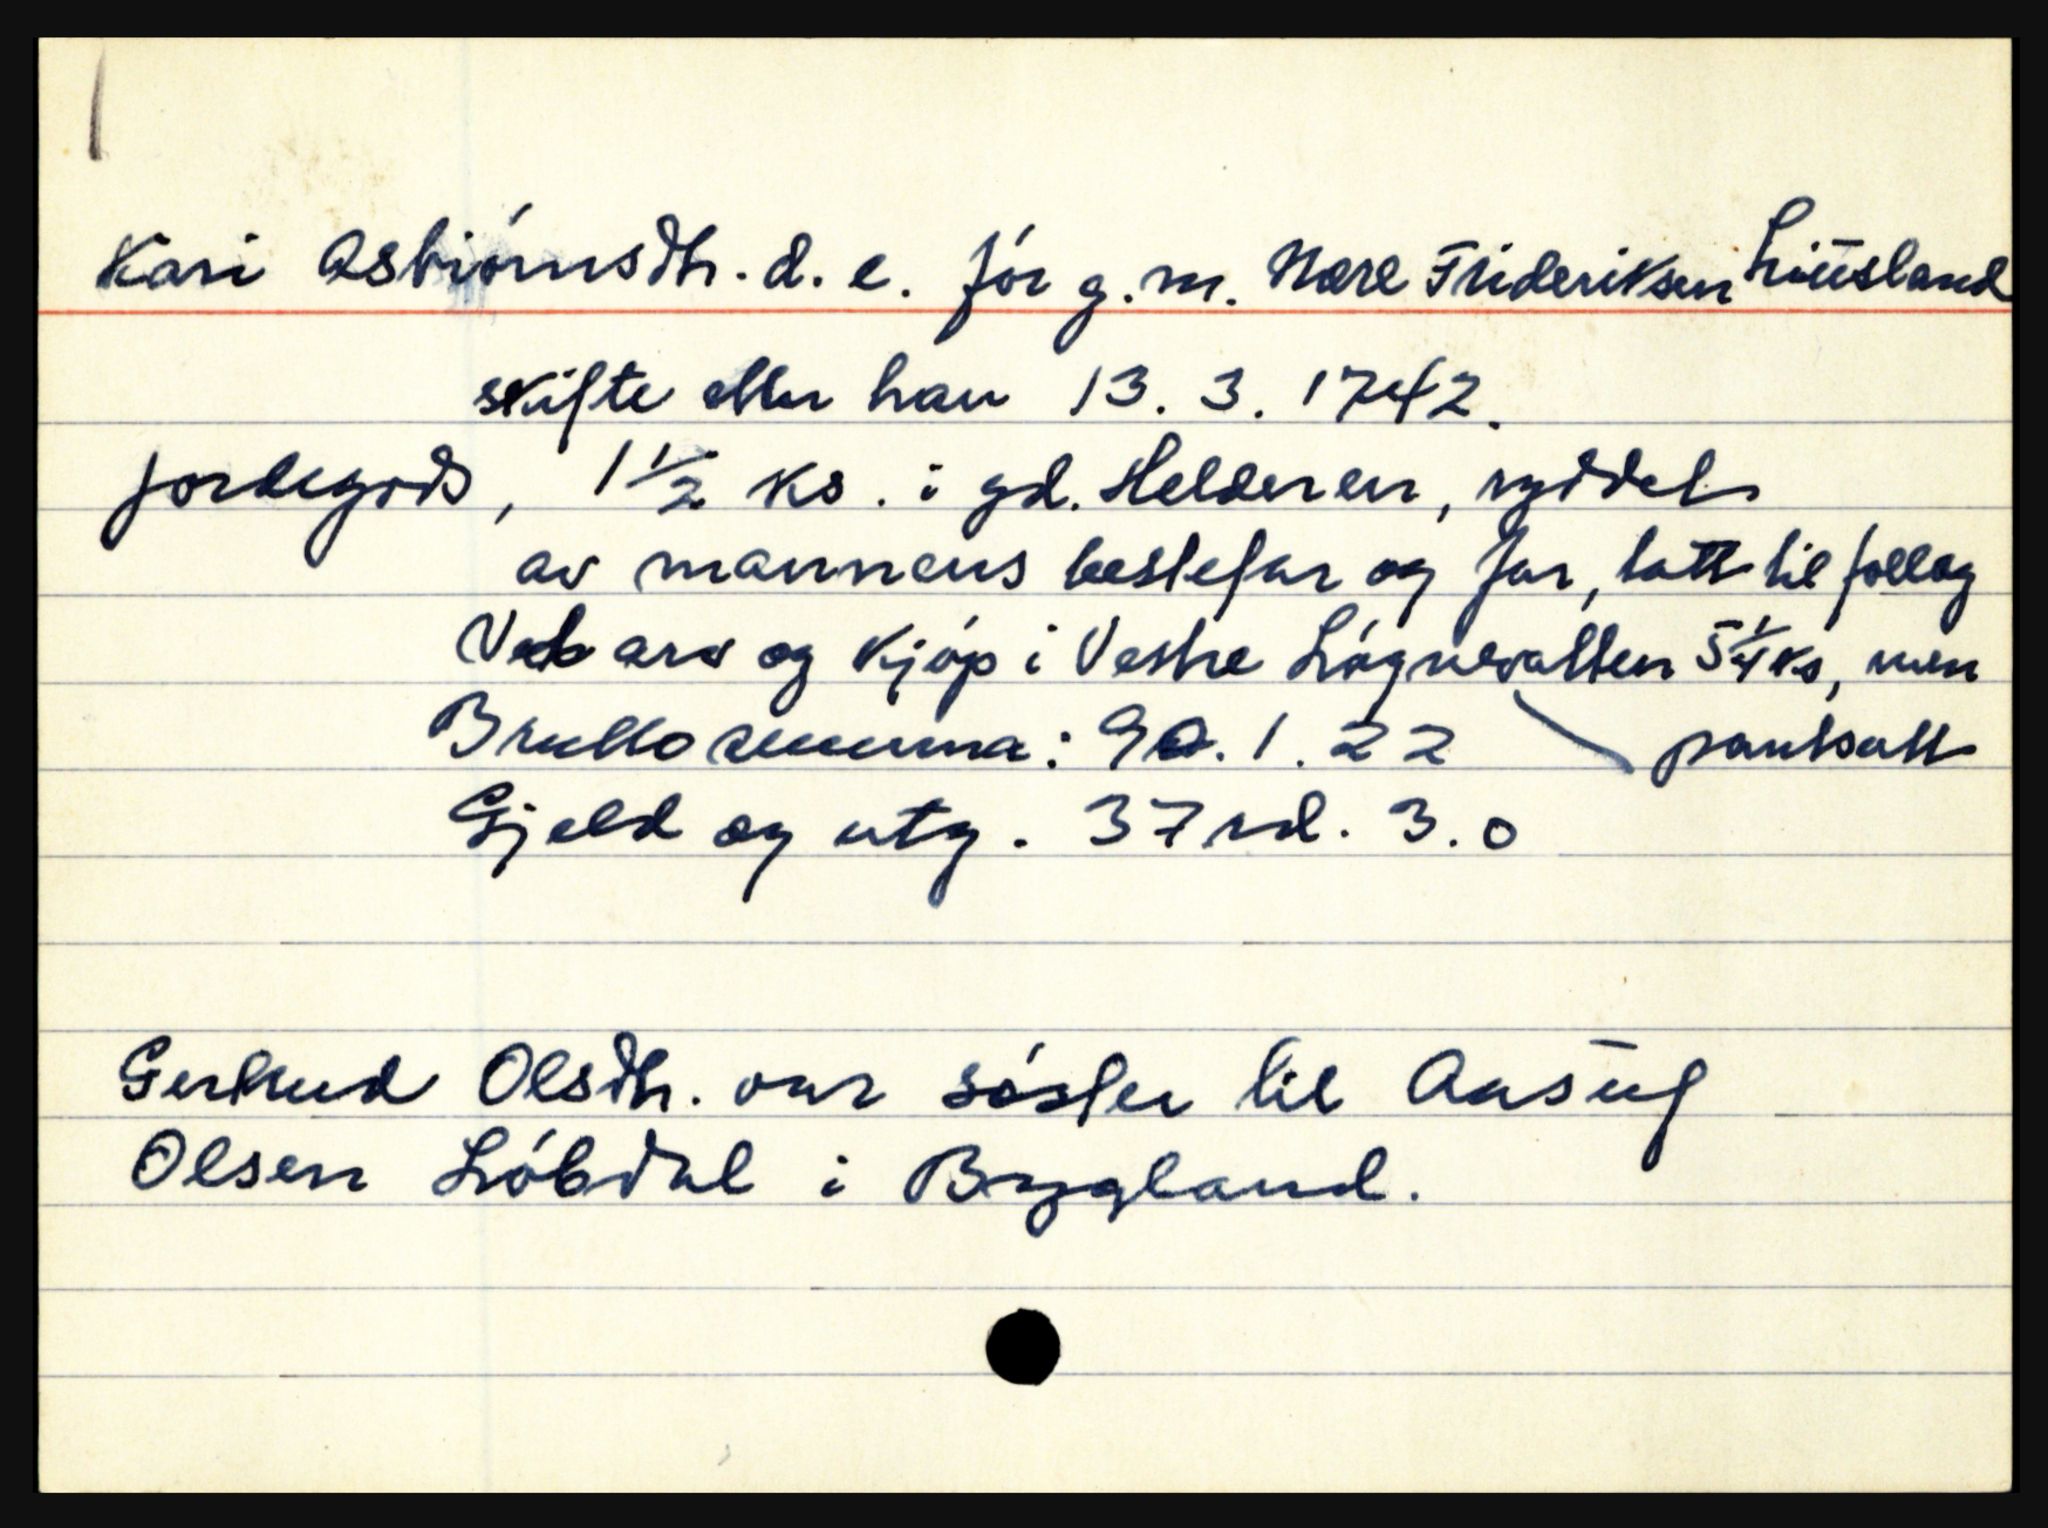 Kari Asbiórnsdtr. d. e. fór g. m. Nære Friderik​sen Liusland
skifte etter han 13. 3. 1742.
jordegods, 1 1/2 ks. i gd. Helderen, ryddet
av mannens bestefar og far, tatt til follog
Ved arv og kjóp i Vestre Lógnevatten 5 1/4 ks, men
Brutto summa: 90. 1. 22 pantsatt
Gjeld og utg. 37 rd. 3. 0
Gertrud Olsdtr. var sóster til Aasuf
Olsen Lóbdal i Bygland.